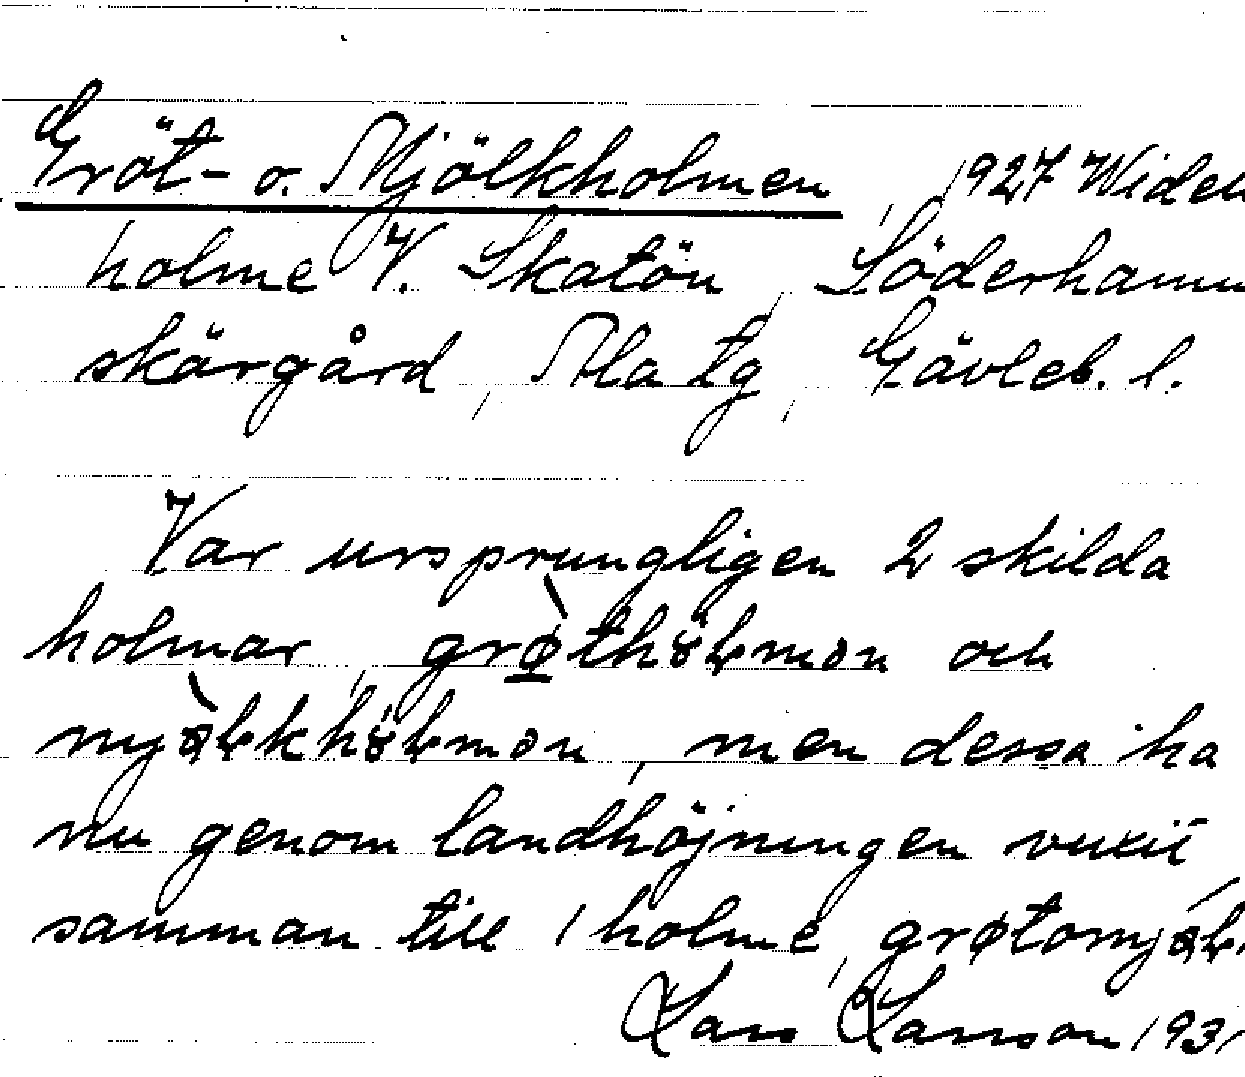 Gröt- o. Mjölkholmen, 1927 Widen
holme V. Skatön, Söderhamn
skärgård, Ala tg, Gävleb. l.
Var ursprungligen 2 skilda
holmar, och
men dessa ha
nu genom landhöjningen vuxit
samman till 1 holme,
Lars Larsson 1931